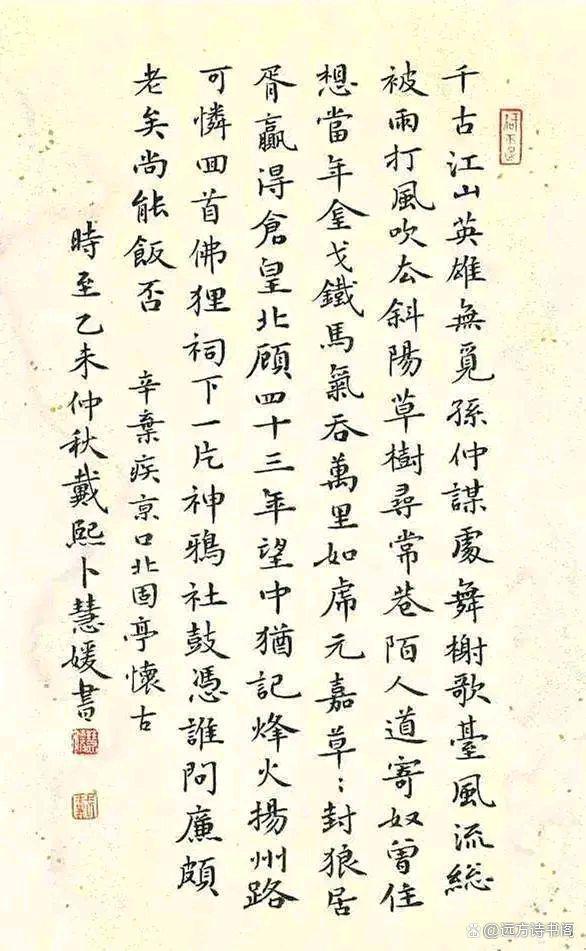 千古江山英雄無覓孫仲謀處舞榭歌臺風流総
被雨打風吹去斜陽草樹尋常巷陌人道寄奴曾住
想當年金戈鐵馬氣吞萬里如虎元嘉草:封狼居
胥贏得倉皇北顧四十三年望中猶記烽火揚州路
可憐回首佛狸祠下一片神鴉社鼓憑誰問廉頗
老矣尚能飯否 辛棄疾京口北固亭懷古
時至乙未仲秋戴熙卜慧媛書
远方诗书阁